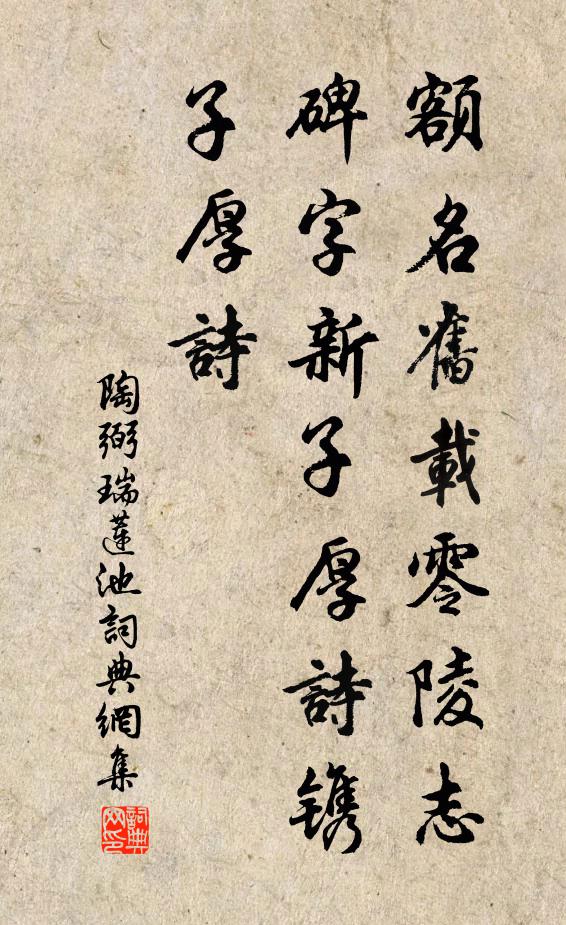 額名舊載零陵志
碑字新子厚詩鐫
子厚詩
陶弼瑞蓮池詞典網集
詞典网印